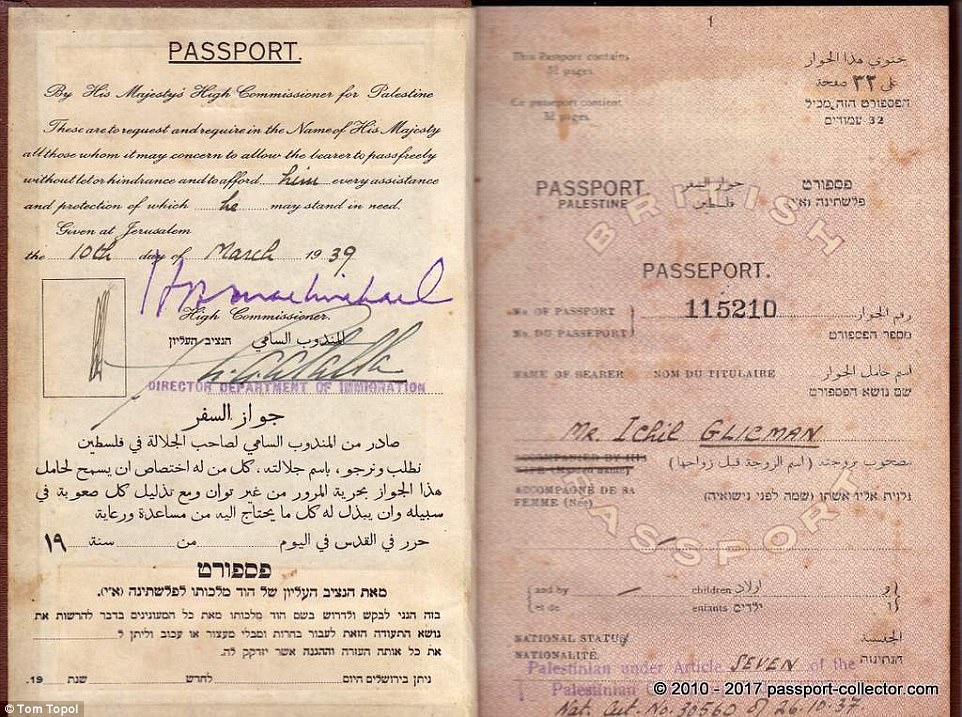 PASSPORT.
By His Majesty's High Commissioner for Palestine
These are to request and require in the Name of His Majesty
all those whom it may concern to allow the bearer to pass freely
without let or hindrance and to afford him every assistance
and protection of which he may stand in need.
Given at Jerusalem
the 10th day of March 1939
High Commissioner.
הנציב העליון المندوب السامي
DIRECTOR DEPARTMENT OF IMMIGRATION
جواز السفر
صادر من المندوب السامي لصاحب الجلالة في فلسطين
نطلب ونرجو، باسم جلالته، كل من له اختصاص ان يسمح لحامل
هذا الجواز بحرية المرور من غير توان ومع تذليل كل صعوبة في
سبيله وان يبذل له كل ما يحتاج اليه من مساعدة ورعاية
حرر في القدس في اليوم من سنة ١٩
פספורט
מאת הנציב העליון של הוד מלכותו לפלשתינה (א״י).
בזה הנני לבקש ולדרוש בשם הוד מלכותו מאת כל המעונינים בדבר להרשות את
נושא התעודה הזאת לעבור בחרות ומבלי מעצור או עכוב וליתן ל
את כל אותה העזרה וההגנה אשר יזדקק לה.
ניתן בירושלים היום לחדש שנת 19.
1
This Passport contains
32 pages.
Ce passeport contient
32 pages.
هذا الجواز
على ٣٢ صفحة
הפספורט הזה מכיל
32 עמודים
PASSPORT. جواز السفر פספורט
PALESTINE فلسطين פלשתינה (א״י)
BRITISH
PASSEPORT.
No. OF PASSPORT 115210 رقم الجواز
No. DU PASSEPORT מספר הפספורט
NAME OF BEARER NOM DU TITULAIRE اسم حامل الجواز
שם נושא הפספורט
Mr. Ichil GLICMAN
ACCOMPANIED BY HIS
WIFE (Maiden name) مصحوب بزوجته (اسم الزوجة قبل زواجها)
ACCOMPAGNÉ DE SA
FEMME (Née) נלוית אליו אשתו (שמה לפני נישואיה)
PASSPORT
and by children اولاد و
et de enfants ילדים ו
NATIONAL STATUS الجنسية
NATIONALITÉ הנתינות
Palestinian under Article SEVEN of the
Palestinian
© 2010 - 2017 passport-collector.com
Nat. Cert. No. 30560 of 26.10.37.
© Tom Topol